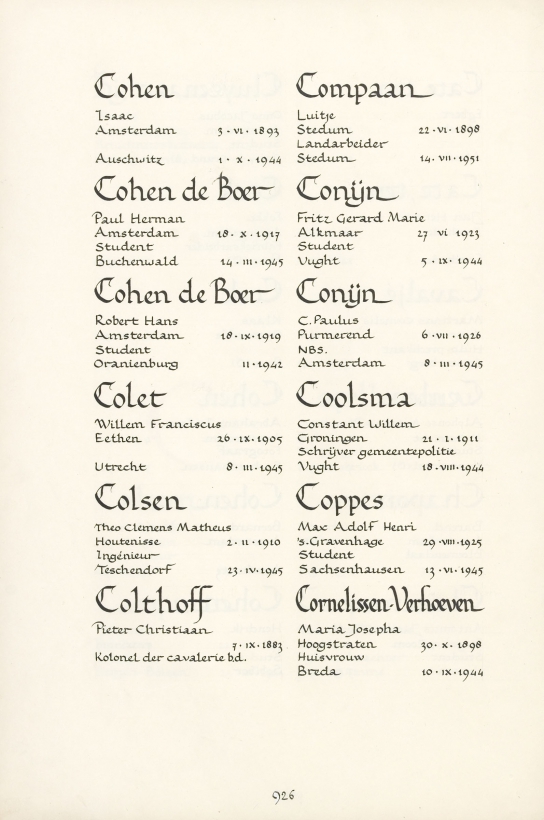 Cohen
Isaac
Amsterdam 3·VI·1893
Auschwitz 1·X·1944
Cohen de Boer
Paul Herman
Amsterdam 18·X·1917
Student
Buchenwald 14·III·1945
Cohen de Boer
Robert Hans
Amsterdam 18·IX·1919
Student
Oranienburg 11·1942
Colet
Willem Franciscus
Eethen 26·IX·1905
Utrecht 8·III·1945
Colsen
Theo Clemens Matheus
Houtenisse 2·11·1910
Ingénieur
Teschendorf 23·IV·1945
Colthoff
Pieter Christiaan
7·IX·1883
Kolonel der cavalerie b.d.
Compaan
Luitje
Stedum 22·VI·1898
Landarbeider
Stedum 14·VII·1951
Conijn
Fritz Gerard Marie
Alkmaar 27 VI 1923
Student
Vught 5·IX·1944
Conijn
C. Paulus
Purmerend 6·VII·1926
NBS.
Amsterdam 8·III·1945
Coolsma
Constant Willem
Groningen 21·1·1911
Schrijver gemeentepolitie
Vught 18·VIII·1944
Coppes
Max Adolf Henri
's-Gravenhage 29·VIII·1925
Student
Sachsenhausen 13·VI·1945
Cornelissen-Verhoeven
Maria Josepha
Hoogstraten 30·X·1898
Huisvrouw
Breda 10·IX·1944
926